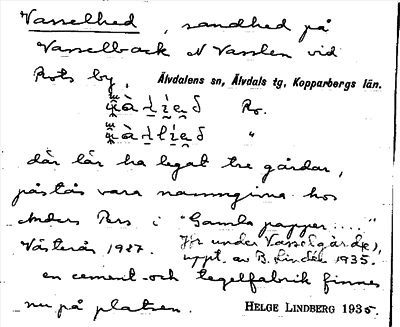 Vasselhed, sandhed på
Vasselback N Vasslen vid
Rots by, Älvdalens sn, Älvdals tg, Kopparbergs län.
Ro.
"
där lär ha legat tre gårdar,
påstås vara namngivna hos
Anders Pers i "Gamla papper ...."
Västerås 1927. Jfr under Vasselgärd(e),
uppt. av B. Lindén 1935.
en cement- och tegelfabrik finnes
nu på platsen. HELGE LINDBERG 1935.